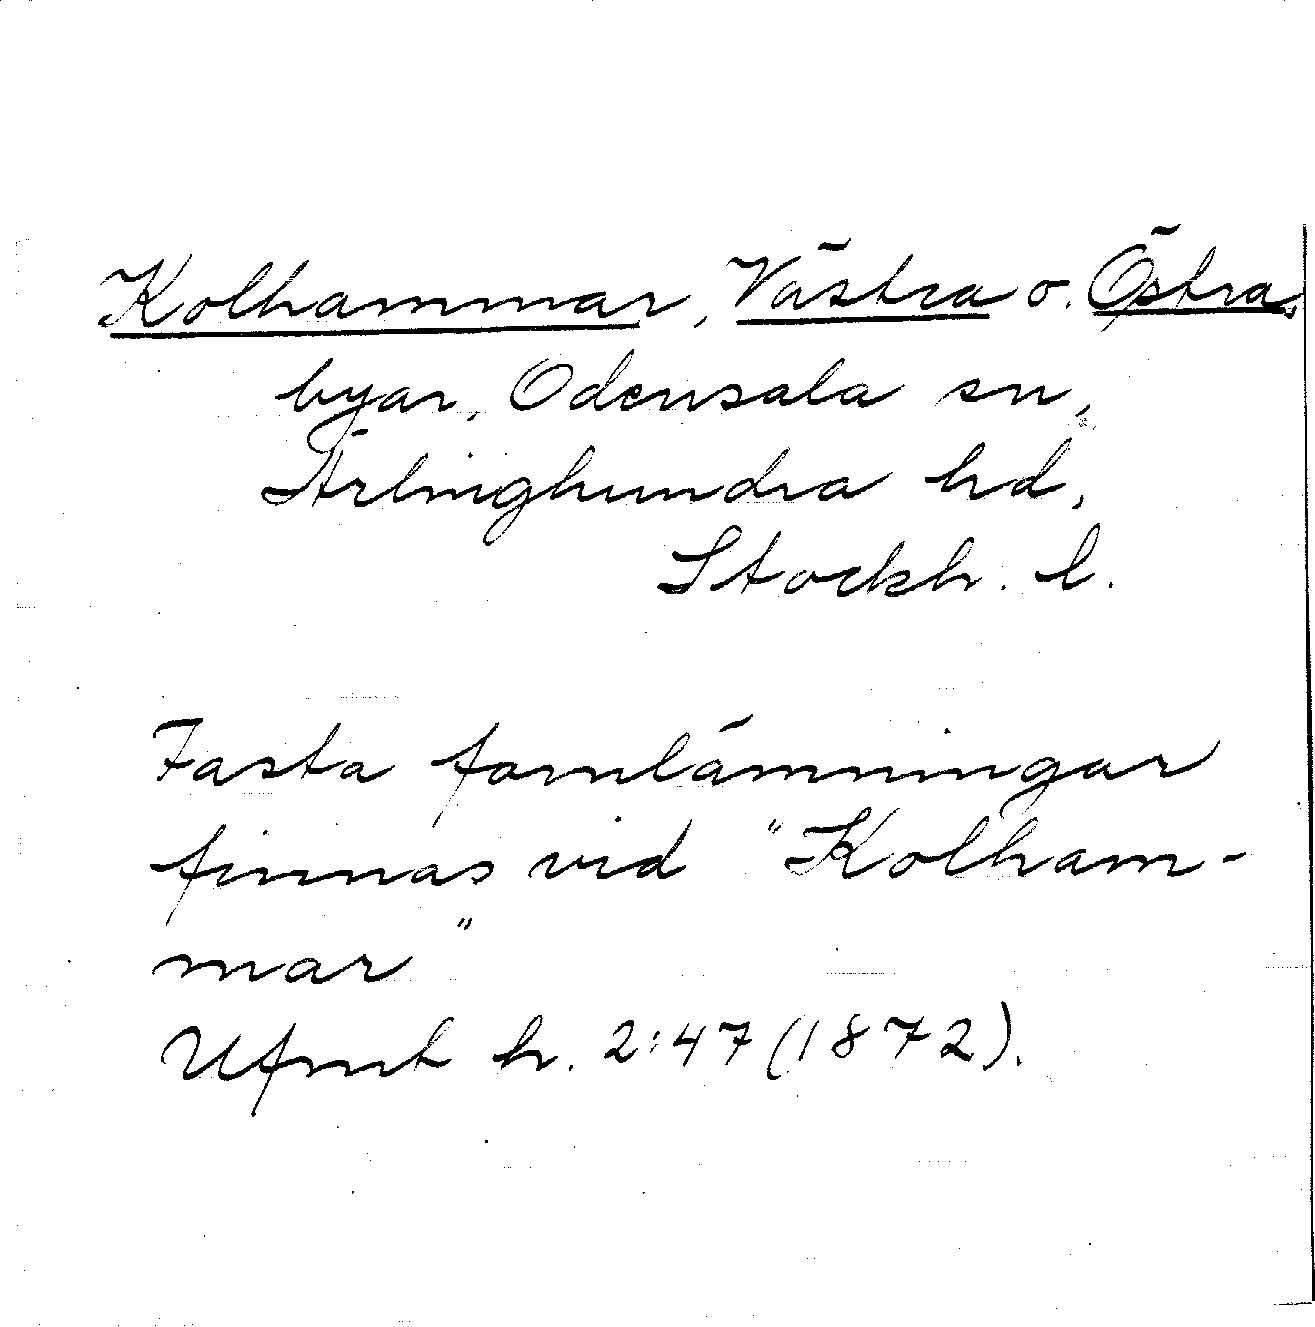 Kolhammar, Västra o. Östra,
byar, Odensala sn,
Ärlinghundra hd,
Stockh. l.
Fasta fornlämningar
finnas vid "Kolham-
mar"
Ufmt h. 2:47 (1872).